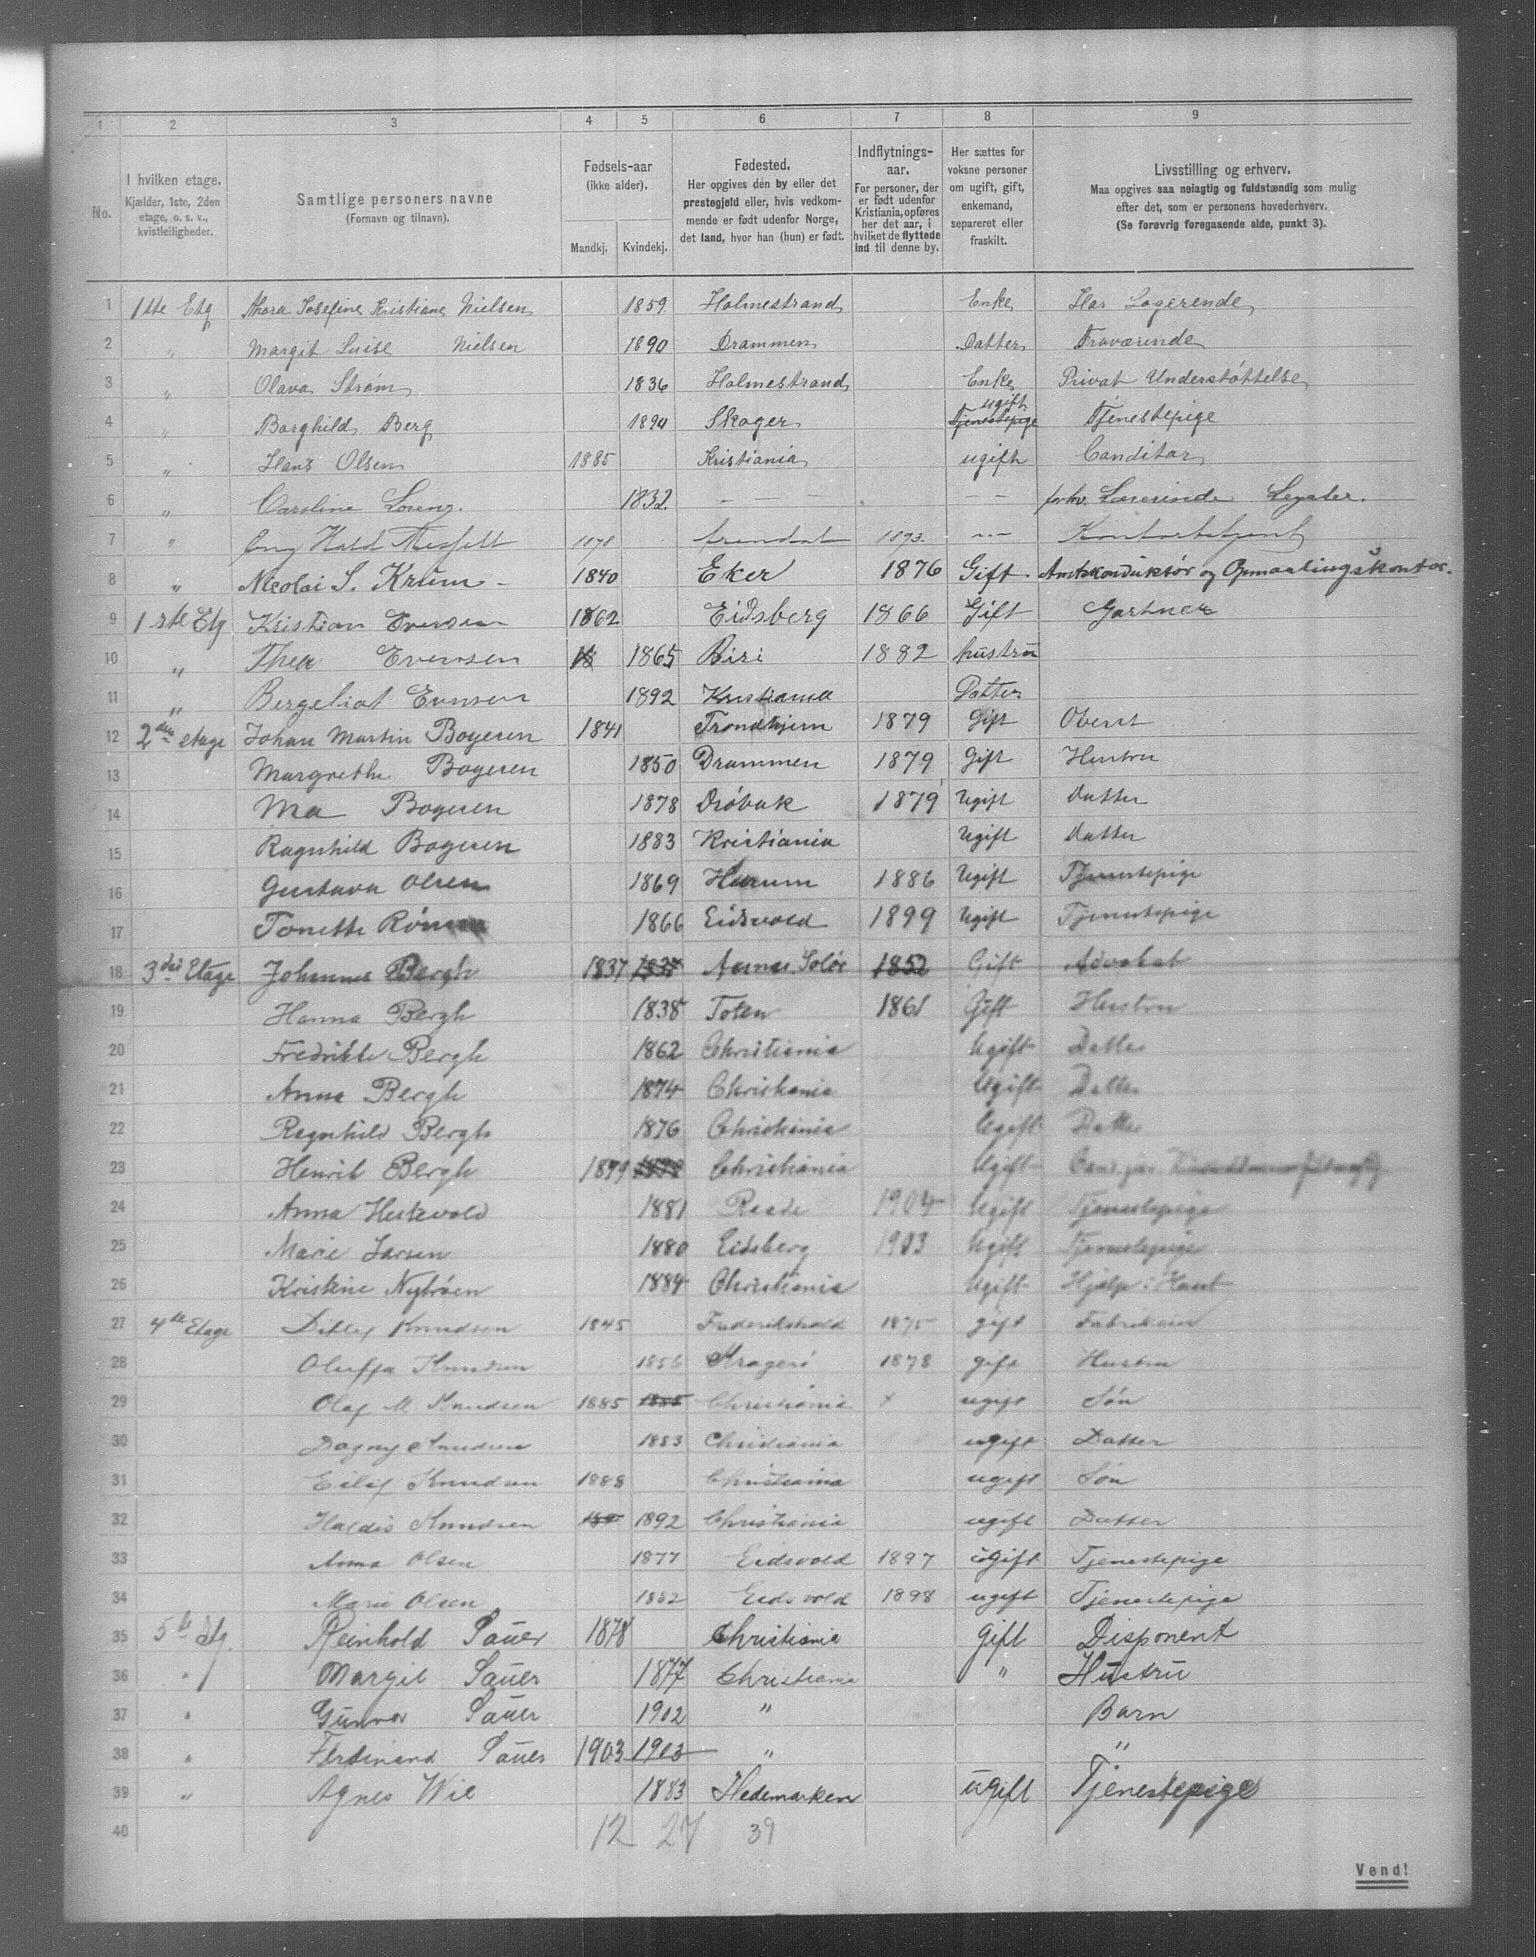 1 2 3 4 5 6 7 8 9
No. I hvilken etage. Kjælder, 1ste, 2den etage, o. s. v., kvistleiligheder. Samtlige personers navne (Fornavn og tilnavn). Fødsels-aar (ikke alder). Mandkj. Kvindekj. Fødested. Her opgives den by eller det prestegjeld eller, hvis vedkommende er født udenfor Norge, det land, hvor han (hun) er født. Indflytnings-aar. For personer, der er født udenfor Kristiania, opføres her det aar, i hvilket de flyttede ind til denne by. Her sættes for voksne personer om ugift, gift, enkemand, separeret eller fraskilt. Livsstilling og erhverv. Maa opgives saa nøiagtig og fuldstændig som mulig efter det, som er personens hovederhverv. (Se forøvrig foregaaende side, punkt 3).
1 1ste Etg Thora Josefine Kristiane Nielsen 1859 Holmestrand Enke Har Logerende
2 " Margit Luise Nielsen 1890 Drammen Datter Fraværende
3 " Olava Strøm 1836 Holmestrand Enke Privat Understøttelse
4 " Borghild Berg 1890 Skoger ugift Tjenestepige Tjenestepige
5 " Hans Olsen 1885 Kristiania ugift Canditor
6 " Caroline Lorenz. 1832 — — — — — forhv. Lærerinde Legater.
7 " 1878 Arendal 1893 — Kontorbetjent
8 " Nicolai S. Krum 1840 Eker 1876 Gift Amtskonduktør og Opmaalingskontor.
9 1ste Etg Kristian Evensen 1862 Eidsberg 1866 Gift Gartner
10 " Thea Evensen 18 1865 Biri 1882 hustru
11 " Bergeliot Evensen 1892 Kristiania Datter
12 2den etage Johan Martin Boyesen 1841 Trondhjem 1879 Gift Oberst
13 Margrethe Boyesen 1850 Drammen 1879 Gift Hustru
14 Boyesen 1878 Drøbak 1879 Ugift Datter
15 Ragnhild Boyesen 1883 Kristiania Ugift Datter
16 Gustava Olsen 1869 Hurum 1886 Ugift Tjenestepige
17 Tonette 1866 Eidsvold 1899 Ugift Tjenestepige
18 3die Etage Johannes Bergh 1837 1837 Aasnes Solør 1852 Gift Advokat
19 Hanna Bergh 1838 Toten 1861 Gift Hustru
20 Fredrikke Bergh 1862 Christiania Ugift Datter
21 Anna Bergh 1874 Christiania Ugift Datter
22 Ragnhild Bergh 1876 Christiania Ugift Datter
23 Henrik Bergh 1879 Christiania Ugift Cand jur.
24 Anna 1881 Raade 1904 Ugift Tjenestepige
25 Marie Larsen 1880 Eidsberg 1903 Ugift Tjenestepige
26 Kristine Nybrøen 1884 Christiania Ugift Hjælp i Huset
27 4de Etage Ditlef Knudsen 1845 Frederikshald 1875 gift Fabrikeier
28 Oluffa Knudsen 1856 Kragerø 1878 gift Hustru
29 Olaf M Knudsen 1885 1885 Christiania x ugift Søn
30 Dagny Knudsen 1883 Christiania ugift Datter
31 Eilif Knudsen 1888 Christiania ugift Søn
32 Haldis Knudsen 1892 Christiania ugift Datter
33 Anna Olsen 1877 Eidsvold 1897 ugift Tjenestepige
34 Marie Olsen 1882 Eidsvold 1898 ugift Tjenestepige
35 5te Etg. Reinhold Sauer 1878 Christiania gift Disponent
36 " Margit Sauer 1877 Christiania " Hustru
37 " Gunvor Sauer 1902 " Barn
38 " Ferdinand Sauer 1903 1903 " "
39 " Agnes Wie 1883 Hedemarken ugift Tjenestepige
40 12 27 39
Vend!